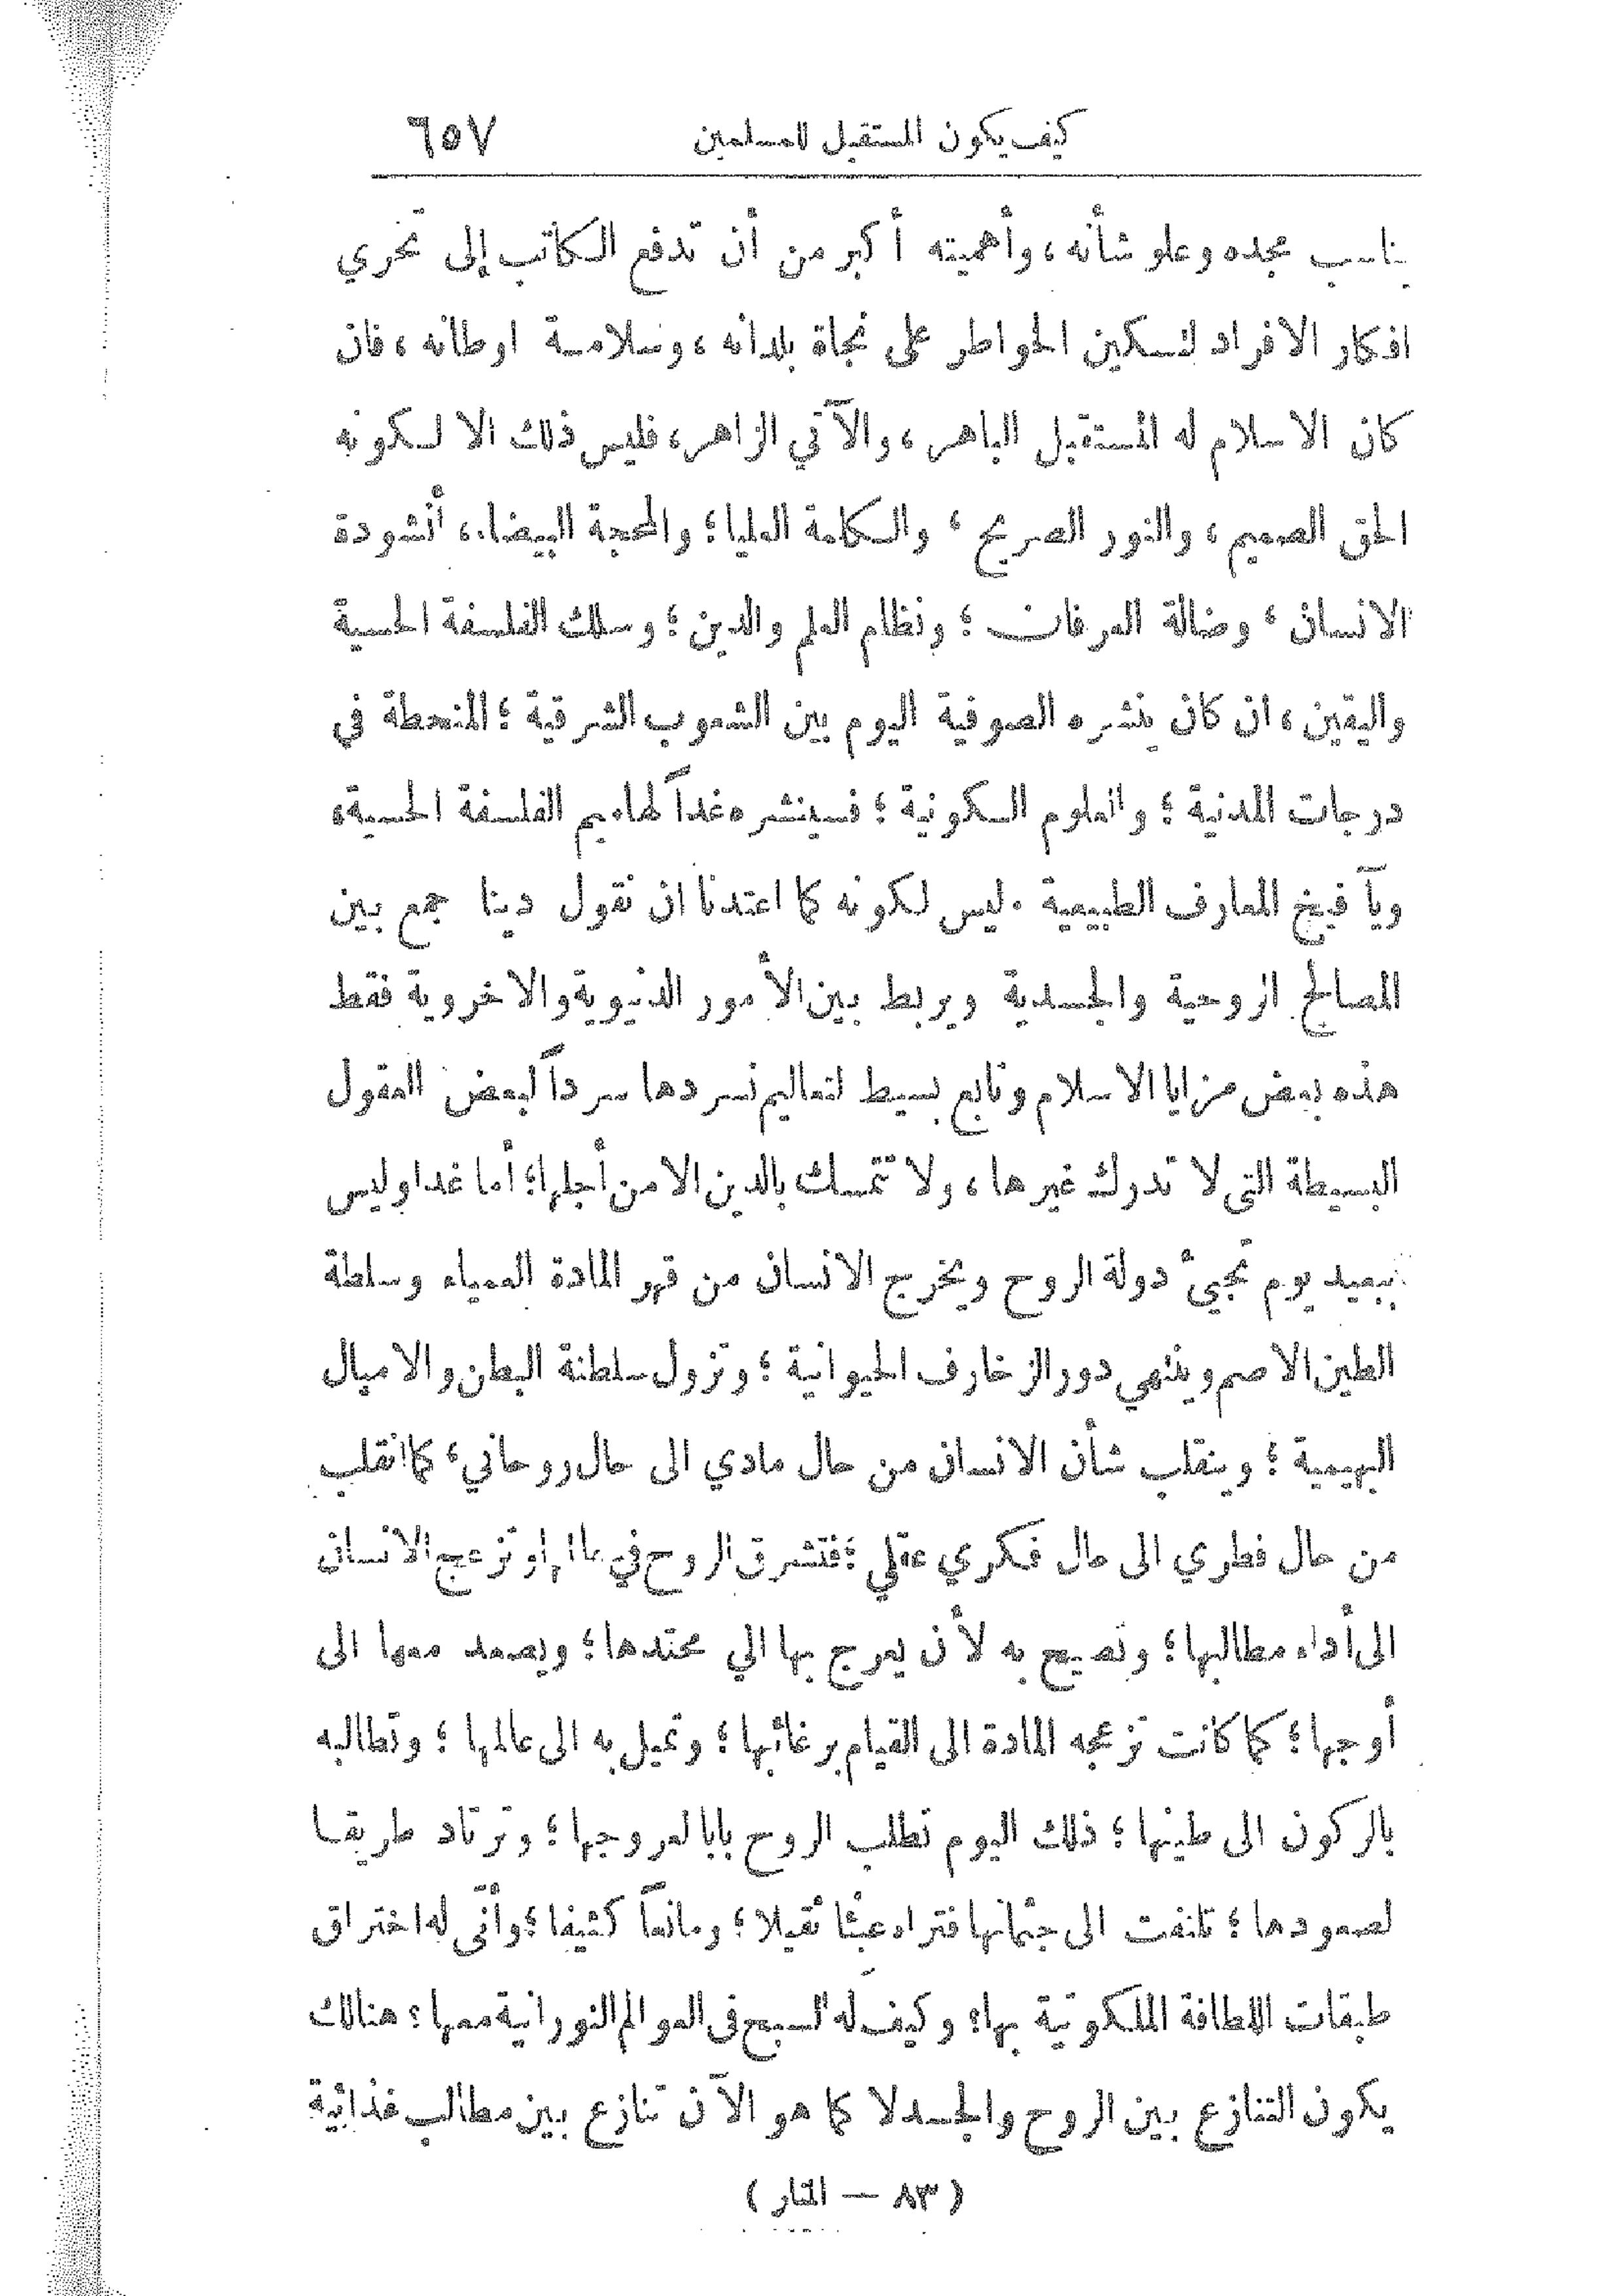 كيف يكون المستقبل للمسلمين ٦٥٧
يناسب مجده وعلو شأنه ، وأهميته أكبر من أن تدفع الكاتب إلى تحري
افكار الافراد لتسكين الخواطر على نجاة بلدانه ، وسلامة اوطانه ، فان
كان الاسلام له المستقبل الباهر ، والآتي الزاهر ، فليس ذلك الا لكونه
الحق الصميم ، والنور الصريح ؛ والكلمة العليا ؛ والمحجة البيضاء ، أنشودة
الانسان ؛ وضالة العرفان ؛ ونظام العلم والدين ؛ وسلك الفلسفة الحسية
واليقين ، ان كان ينشره الصوفية اليوم بين الشعوب الشرقية ؛ المنحطة في
درجات المدنية ؛ والعلوم الكونية ؛ فسينشره غداً لهاميم الفلسفة الحسية ،
ويآفيخ المعارف الطبيعية . ليس لكونه كما اعتدنا ان نقول دينا جمع بين
المصالح الروحية والجسدية ويربط بين الأمور الدنيوية والاخروية فقط
هذه بعض مزايا الاسلام وتابع بسيط لتعاليم نسردها سرداً لبعض العقول
البسيطة التي لا تدرك غيرها ، ولا تتمسك بالدين الا من أجلها ؛ أما غدا وليس
ببعيد يوم تجيئ دولة الروح ويخرج الانسان من قهر المادة العمياء وسلطة
الطين الاصم وينتهي دور الزخارف الحيوانية ؛ وتزول سلطنة البطن والاميال
البهيمية ؛ وينقلب شأن الانسان من حال مادي الى حال روحاني ؛ كما انقلب
من حال فطري الى حال فكري عقلي ؛ فتشرق الروح في وتزعج الانسان
الى أداء مطالبها ؛ وتصيح به لأن يعرج بها الي محتدها ؛ ويصعد معها الى
أوجها ؛ كما كانت تزعجه المادة الى القيام برغائبها ؛ وتميل به الى عالمها ؛ وتطالبه
بالركون الى طينها ؛ ذلك اليوم تطلب الروح بابا لعروجها ؛ وترتاد طريقا
لصعودها ؛ تلتفت الى جثمانها فتراه عبئا ثقيلا ؛ ومانعاً كثيفا ؛ وأنّى له اختراق
طبقات اللطافة الملكوتية بها ؛ وكيف له السبح فى العوالم النورانية معها ؛ هنالك
يكون التنازع بين الروح والجسد لا كما هو الآن تنازع بين مطالب غذائية
( ٨٣ — المنار )